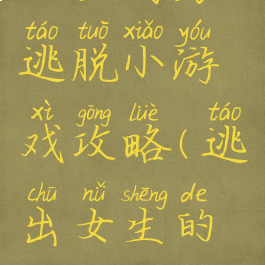 táo tuō xiǎo yóu
逃脱小游
xì gōng lüè táo
戏攻略(逃
chū nǚ shēng de
出女生的